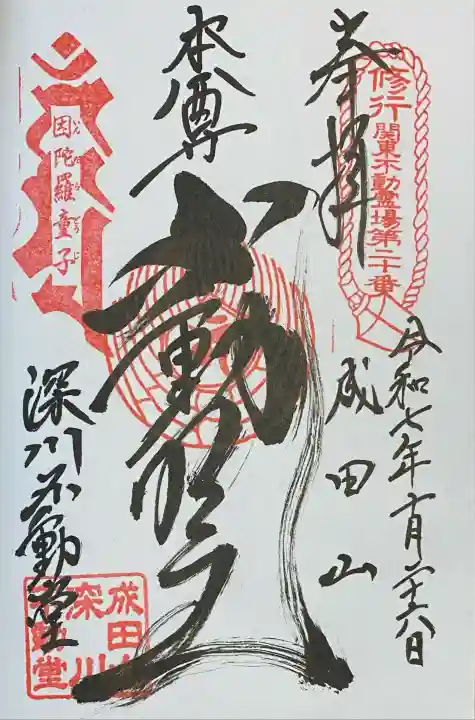 奉拝
修行
関東不動霊場第二十番
令和七年十月二十六日
成田山
本尊
不動明王
因陀羅童子
いんだらどうじ
深川不動堂
成田山
深川
不動堂